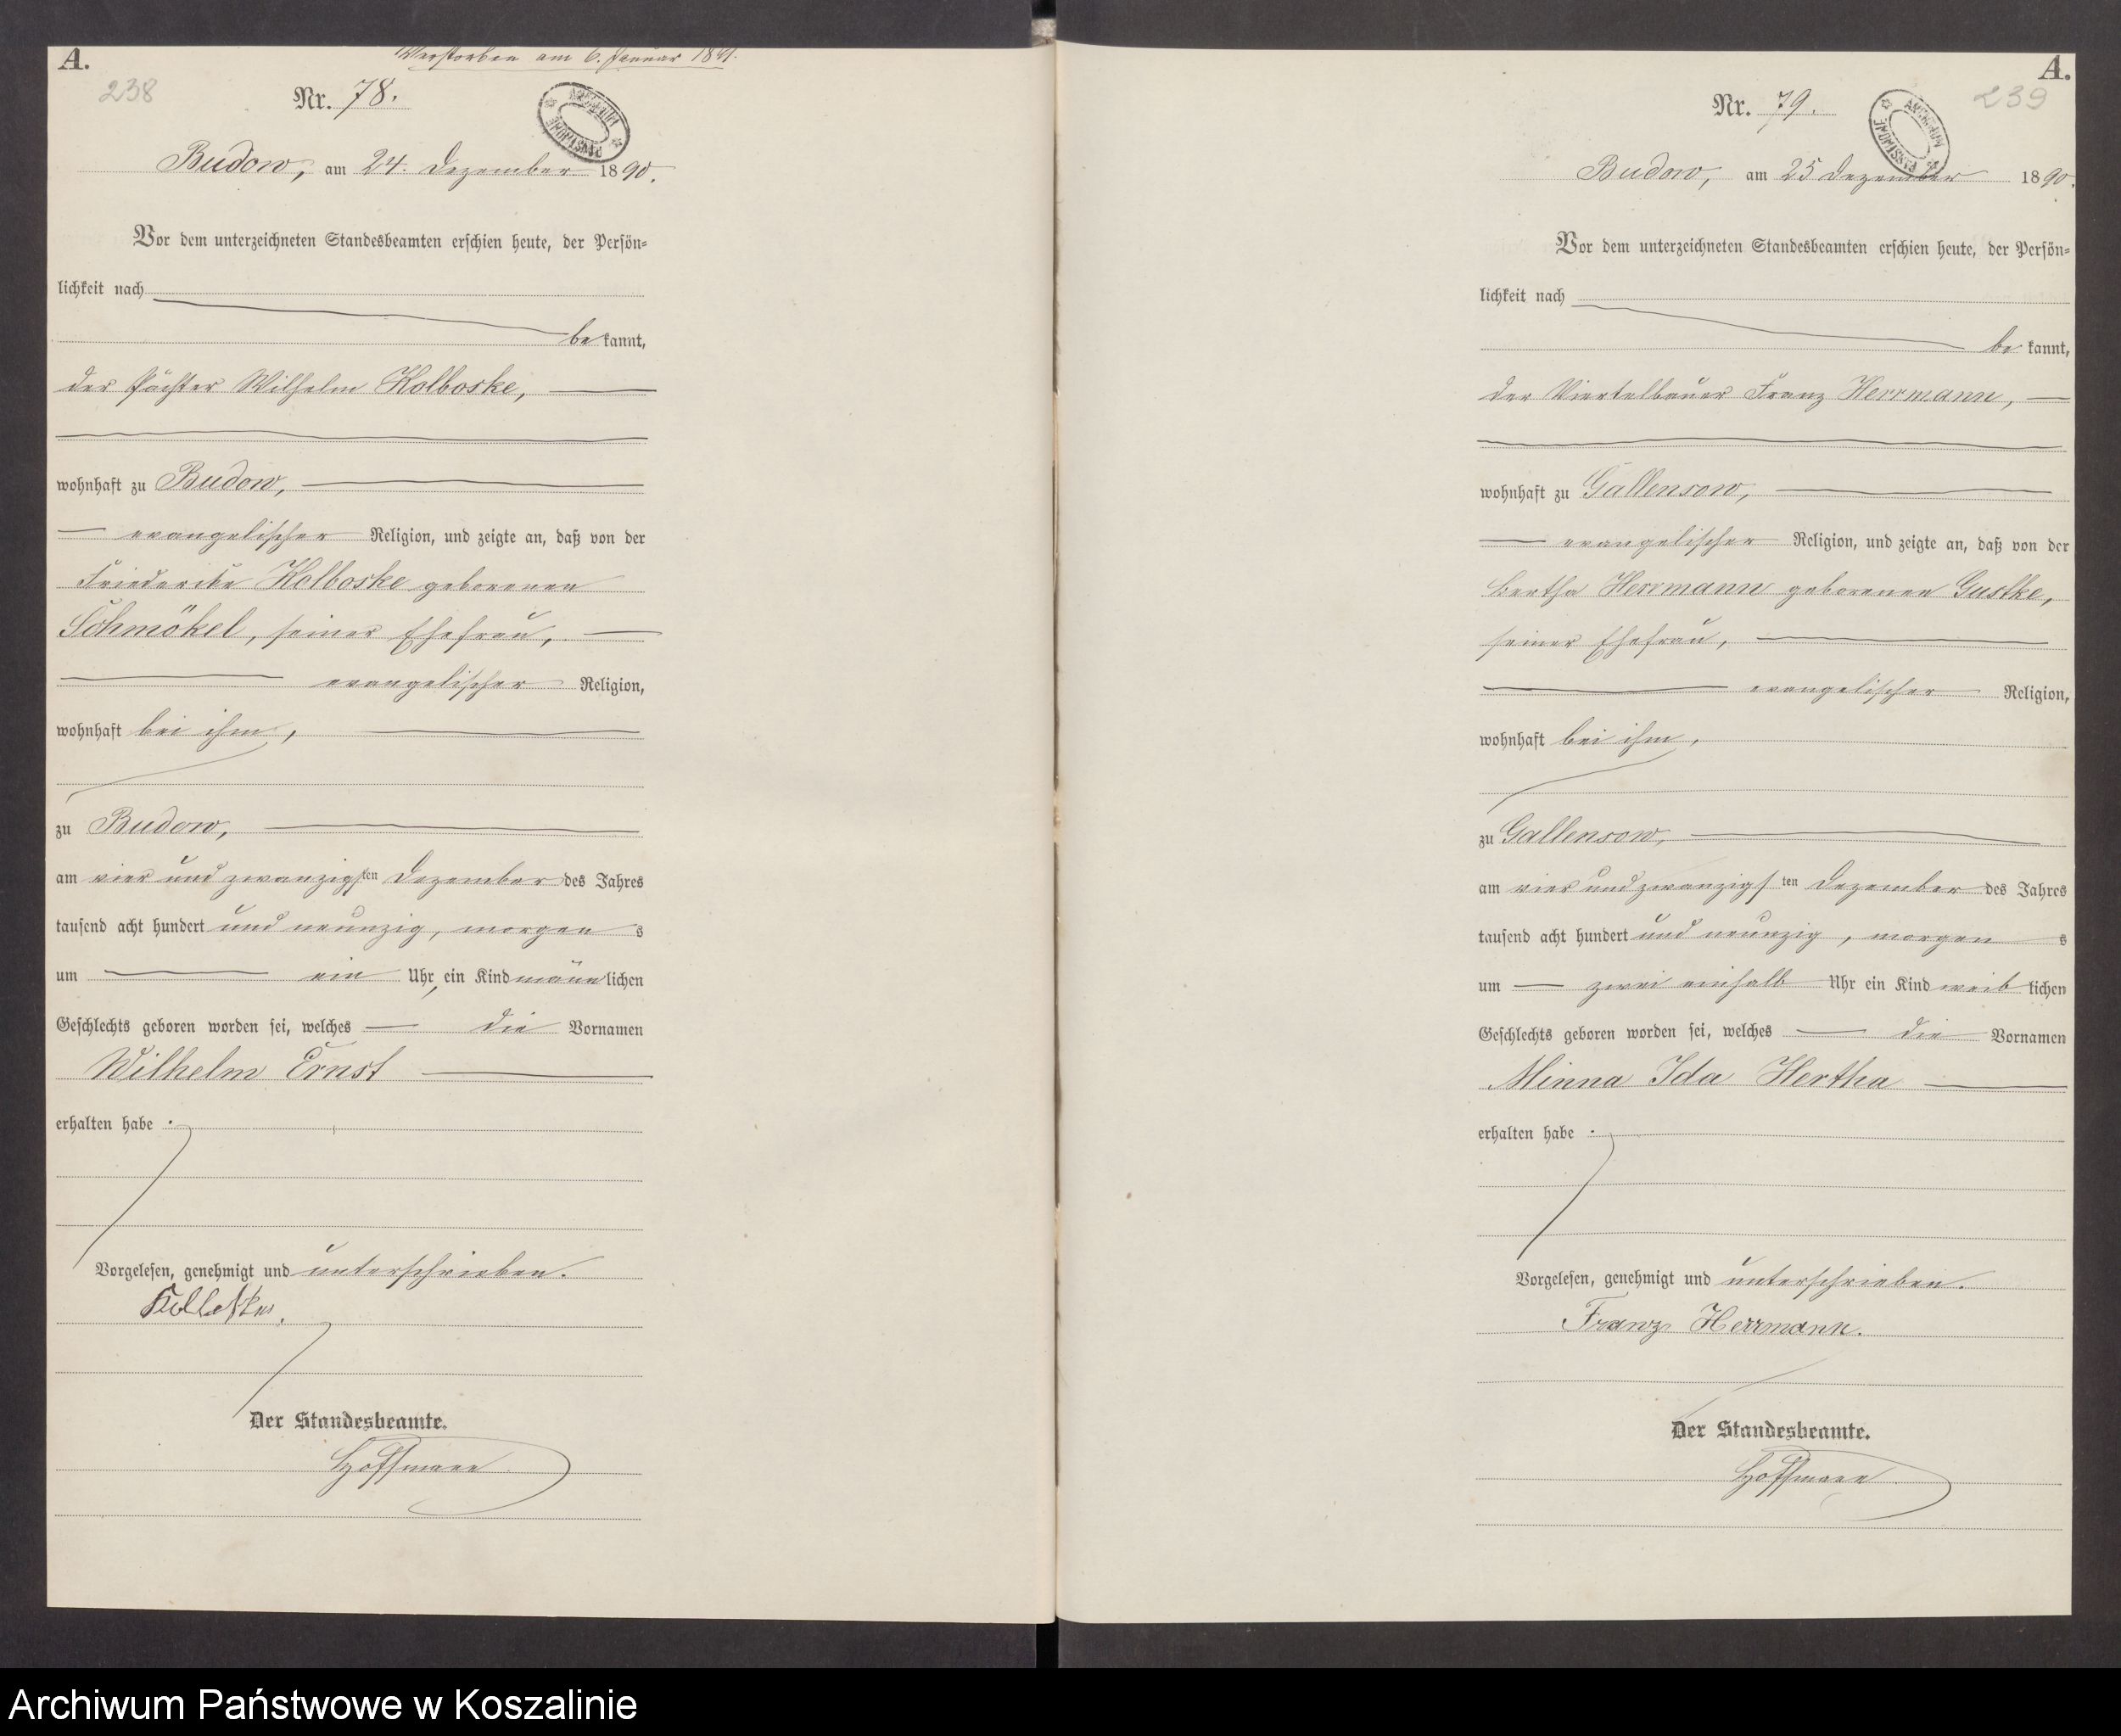 A.
Verstorben am 6. Januar 1891.
238
Nr. 78.
ARCHIWUM PAŃSTWOWE
Budow, am 24. Dezember 1890.
Vor dem unterzeichneten Standesbeamten erschien heute, der Persön=
lichkeit nach
be kannt,
der Pächter Wilhelm Kolboske,
wohnhaft zu Budow,
evangelischer Religion, und zeigte an, daß von der
Friederike Kolboske geborenen
Schmökel, seiner Ehefrau,
evangelischer Religion,
wohnhaft bei ihm,
zu Budow,
am vier und zwanzigsten Dezember des Jahres
tausend acht hundert und neunzig, morgen s
um ein Uhr, ein Kind männ lichen
Geschlechts geboren worden sei, welches die Vornamen
Wilhelm Ernst
erhalten habe.
Vorgelesen, genehmigt und unterschrieben.
Der Standesbeamte.
Hoffmann
A.
239
Nr. 79.
ARCHIWUM PAŃSTWOWE
Budow, am 25 Dezember 1890.
Vor dem unterzeichneten Standesbeamten erschien heute, der Persön=
lichkeit nach
be kannt,
der Viertelbauer Franz Herrmann,
wohnhaft zu Gallensow,
evangelischer Religion, und zeigte an, daß von der
Bertha Herrmann geborenen Gustke,
seiner Ehefrau,
evangelischer Religion,
wohnhaft bei ihm,
zu Gallensow,
am vier und zwanzigs ten Dezember des Jahres
tausend acht hundert und neunzig, morgen s
um zwei einhalb Uhr ein Kind weib lichen
Geschlechts geboren worden sei, welches die Vornamen
Minna Ida Hertha
erhalten habe.
Vorgelesen, genehmigt und unterschrieben.
Franz Herrmann.
Der Standesbeamte.
Hoffmann
Archiwum Państwowe w Koszalinie